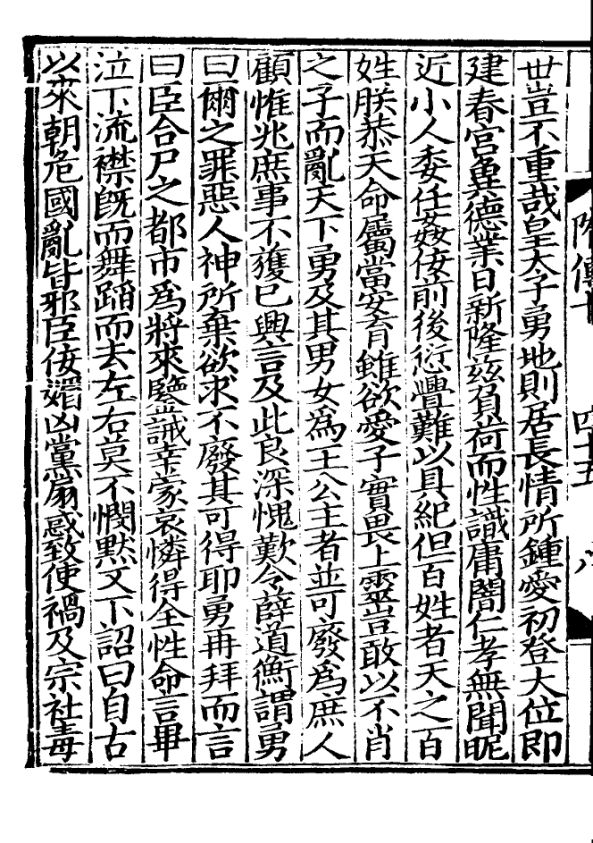 隋傳十　四十五　八
世豈不重哉皇太子勇地則居長情所鍾愛初登大位即
建春宮冀德業日新隆玆負荷而性識庸闇仁孝無聞昵
近小人委任姦佞前後愆釁難以具紀但百姓者天之百
姓朕恭天命屬當安育雖欲愛子實畏上靈豈敢以不肖
之子而亂天下勇及其男女爲王公主者並可廢爲庶人
顧惟兆庶事不獲已興言及此良深愧歎令薛道衡謂勇
曰爾之罪惡人神所棄欲求不廢其可得耶勇再拜而言
曰臣合尸之都市爲將來鑒誡幸蒙哀憐得全性命言畢
泣下流襟旣而舞蹈而去左右莫不憫默又下詔曰自古
以來朝危國亂皆邪臣佞媚凶黨扇惑致使禍及宗社毒